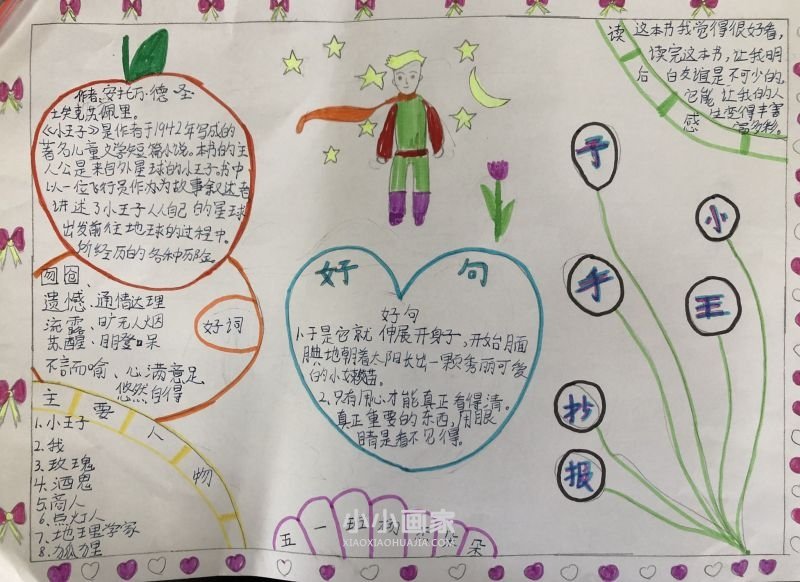 作者:安托万·德·圣
埃克苏佩里。
《小王子》是作者于1942年写成的
著名儿童文学短篇小说。本书的主
人公是来自外星球的小王子。书中
以一位飞行员作为故事叙述者
讲述了小王子从自己的星球
出发前往地球的过程中。
所经历的各种历险。
好词
囫囵、
遗憾、通情达理
流露、旷无人烟
苏醒、目瞪口呆
不言而喻、心满意足
悠然自得
主要人物
1.小王子
2.我
3.玫瑰
4.酒鬼
5.商人
6.点灯人
7.地理学家
8.狐狸
好句
好句
1.于是它就伸展开身子,开始腼
腆地朝着太阳长出一颗秀丽可爱
的小嫩苗。
2.只有用心才能真正看得清。
真正重要的东西,用眼
睛是看不见得。
读后感
这本书我觉得很好看,
读完这本书,让我明
白友谊是不可少的,
它能让我的人
生变得丰富
多彩。
小
王
子
手
抄
报
五一
朵
小小画家
XIAOXIAOHUAJIA.COM